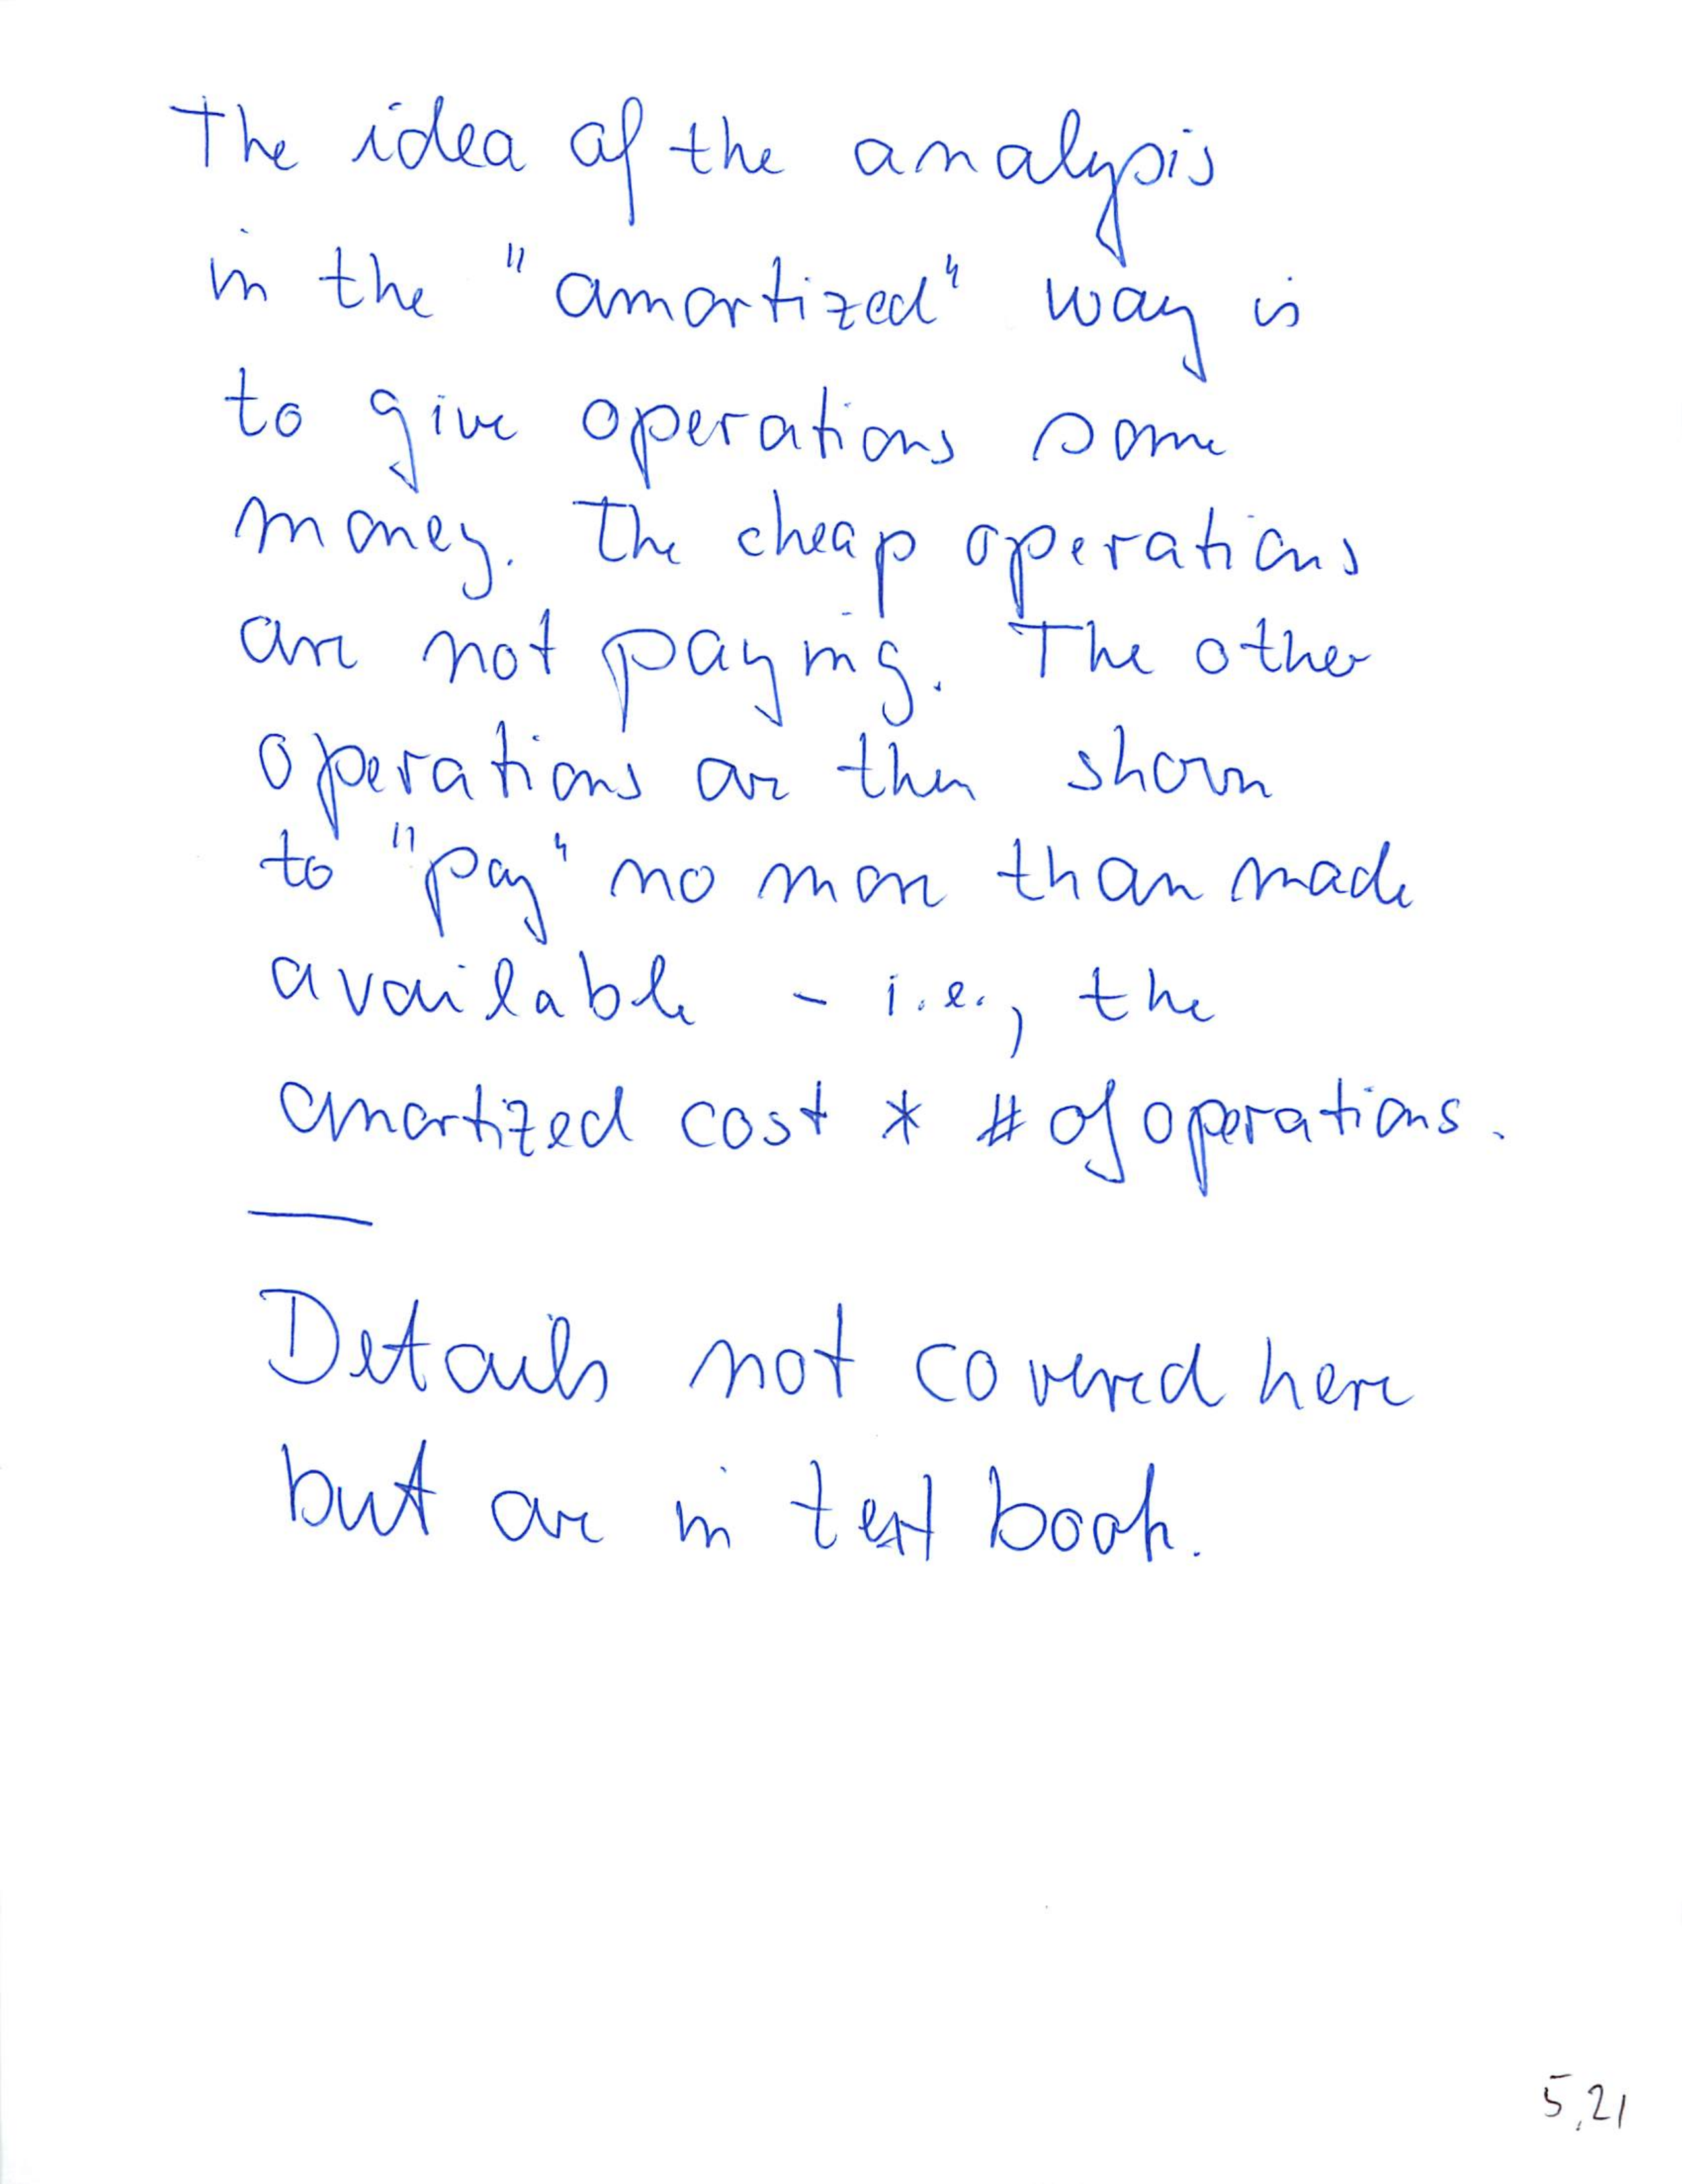 The idea of the analysis
in the "amortized" way is
to give operations some
money. The cheap operations
are not paying. The other
operations are then shown
to "pay" no more than made
available - i.e., the
amortized cost * # of operations.
Details not covered here
but are in text book.
5.21